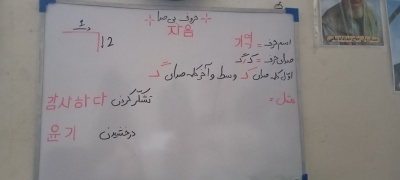 حروف بی صدا
자음
اسم حرف = 기역
صدای حرف = ک/گ
اول کلمه صدای ک وسط و آخر کلمه صدای گ
مثل =
감사하다 تشکر کردن
윤기 درخشیدن
1
2